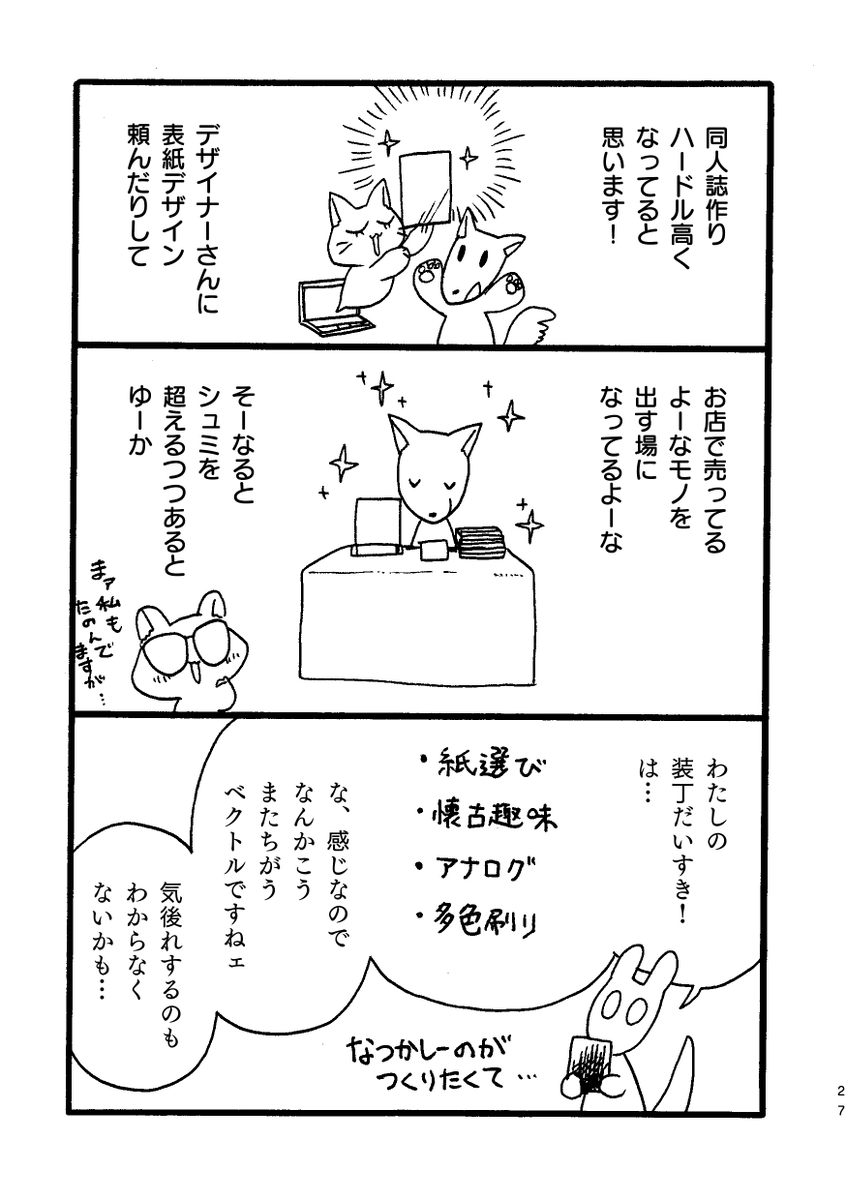 同人誌作り
ハードル高く
なってると
思います！
デザイナーさんに
表紙デザイン
頼んだりして
お店で売ってる
よーなモノを
出す場に
なってるよーな
そーなると
シュミを
超えるつつあると
ゆーか
まァ私も
たのんで
ますが…
わたしの
装丁だいすき！
は…
・紙選び
・懐古趣味
・アナログ
・多色刷り
な、感じなので
なんかこう
またちがう
ベクトルですねェ
気後れするのも
わからなく
ないかも…
なつかしーのが
つくりたくて…
27